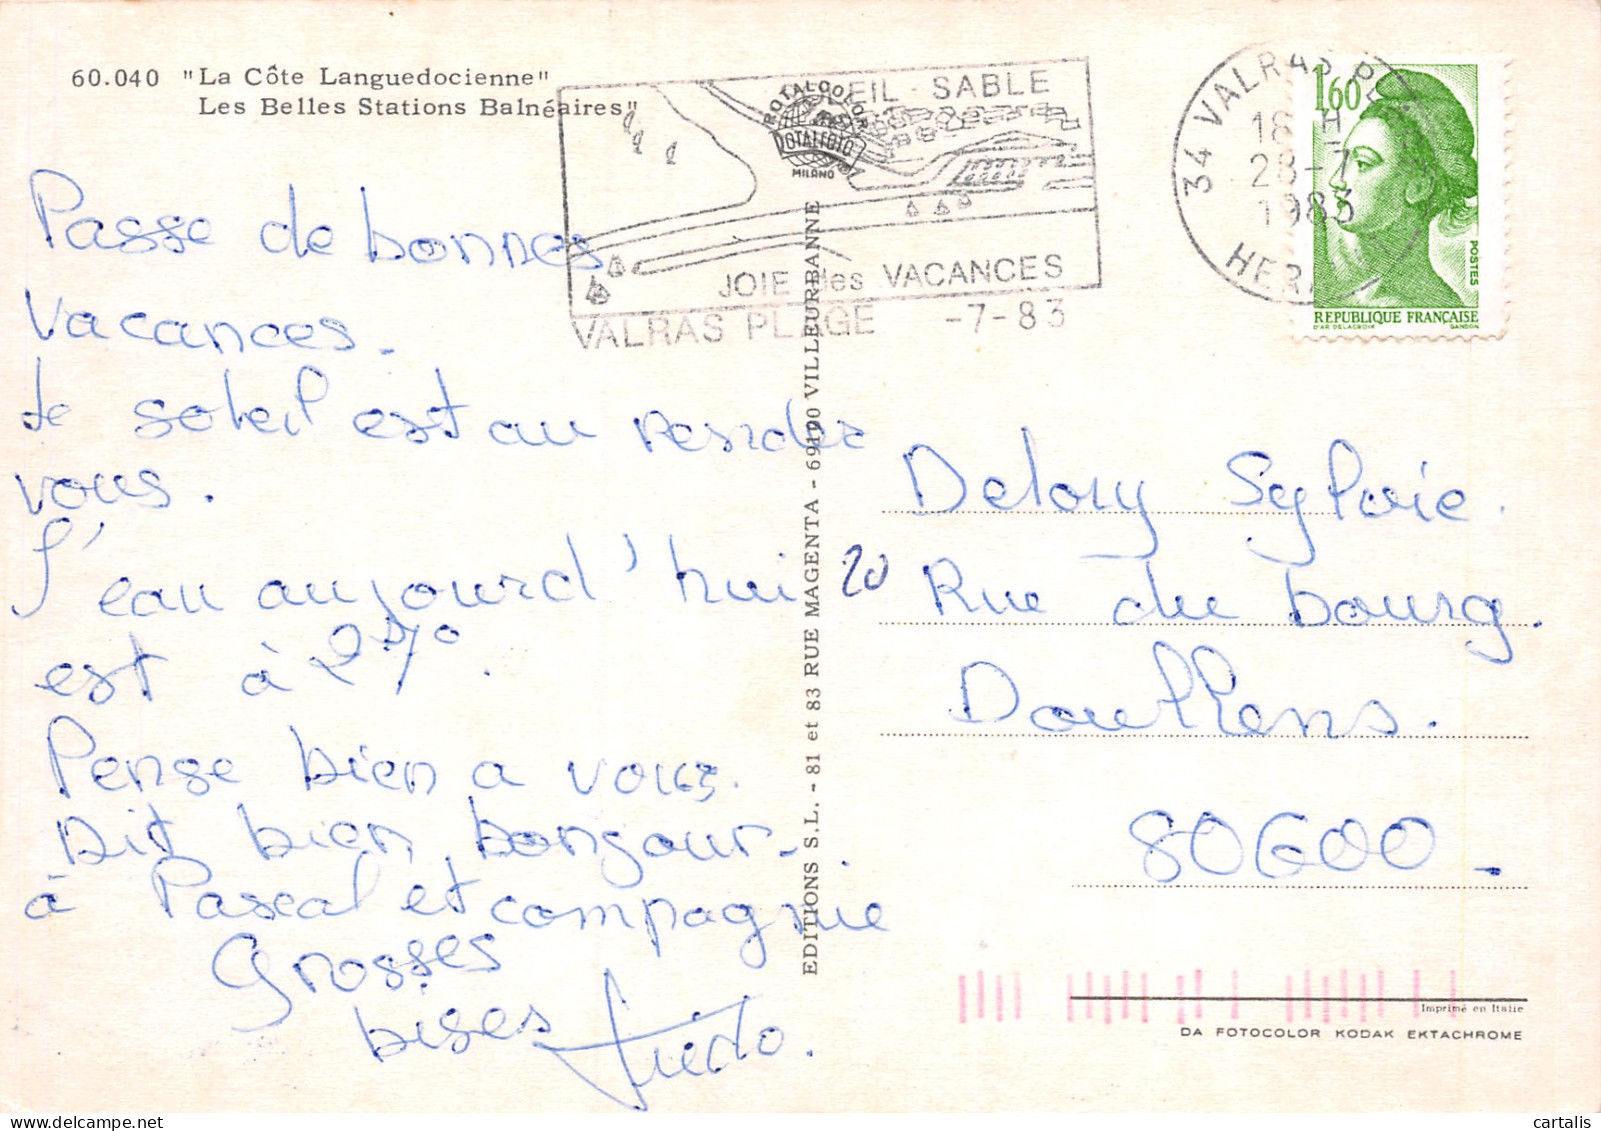 60.040 "La Côte Languedocienne"
Les Belles Stations Balnéaires"
Passe de bonnes
vacances.
Le soleil est au rendez
vous.
L'eau aujourd'hui
est à 2
Pense bien a vous.
Dit bien bonjour
à Pascal et compagnie
Grosses
bises
EIL - SABLE
ROTALCOLOR
ROTALFOTO
MILANO
JOIE des VACANCES
VALRAS PLAGE -7-83
34 VALRAS PLAGE
18 H
28-7
1983
HER
1,60
POSTES
REPUBLIQUE FRANÇAISE
D'AP. DELACROIX GANDON
EDITIONS S.L. - 81 et 83 RUE MAGENTA - 69100 VILLEURBANNE
Delory Sylvie.
20 Rue du bourg.
Doullens.
80600 -
Imprimé en Italie
DA FOTOCOLOR KODAK EKTACHROME
cartalis